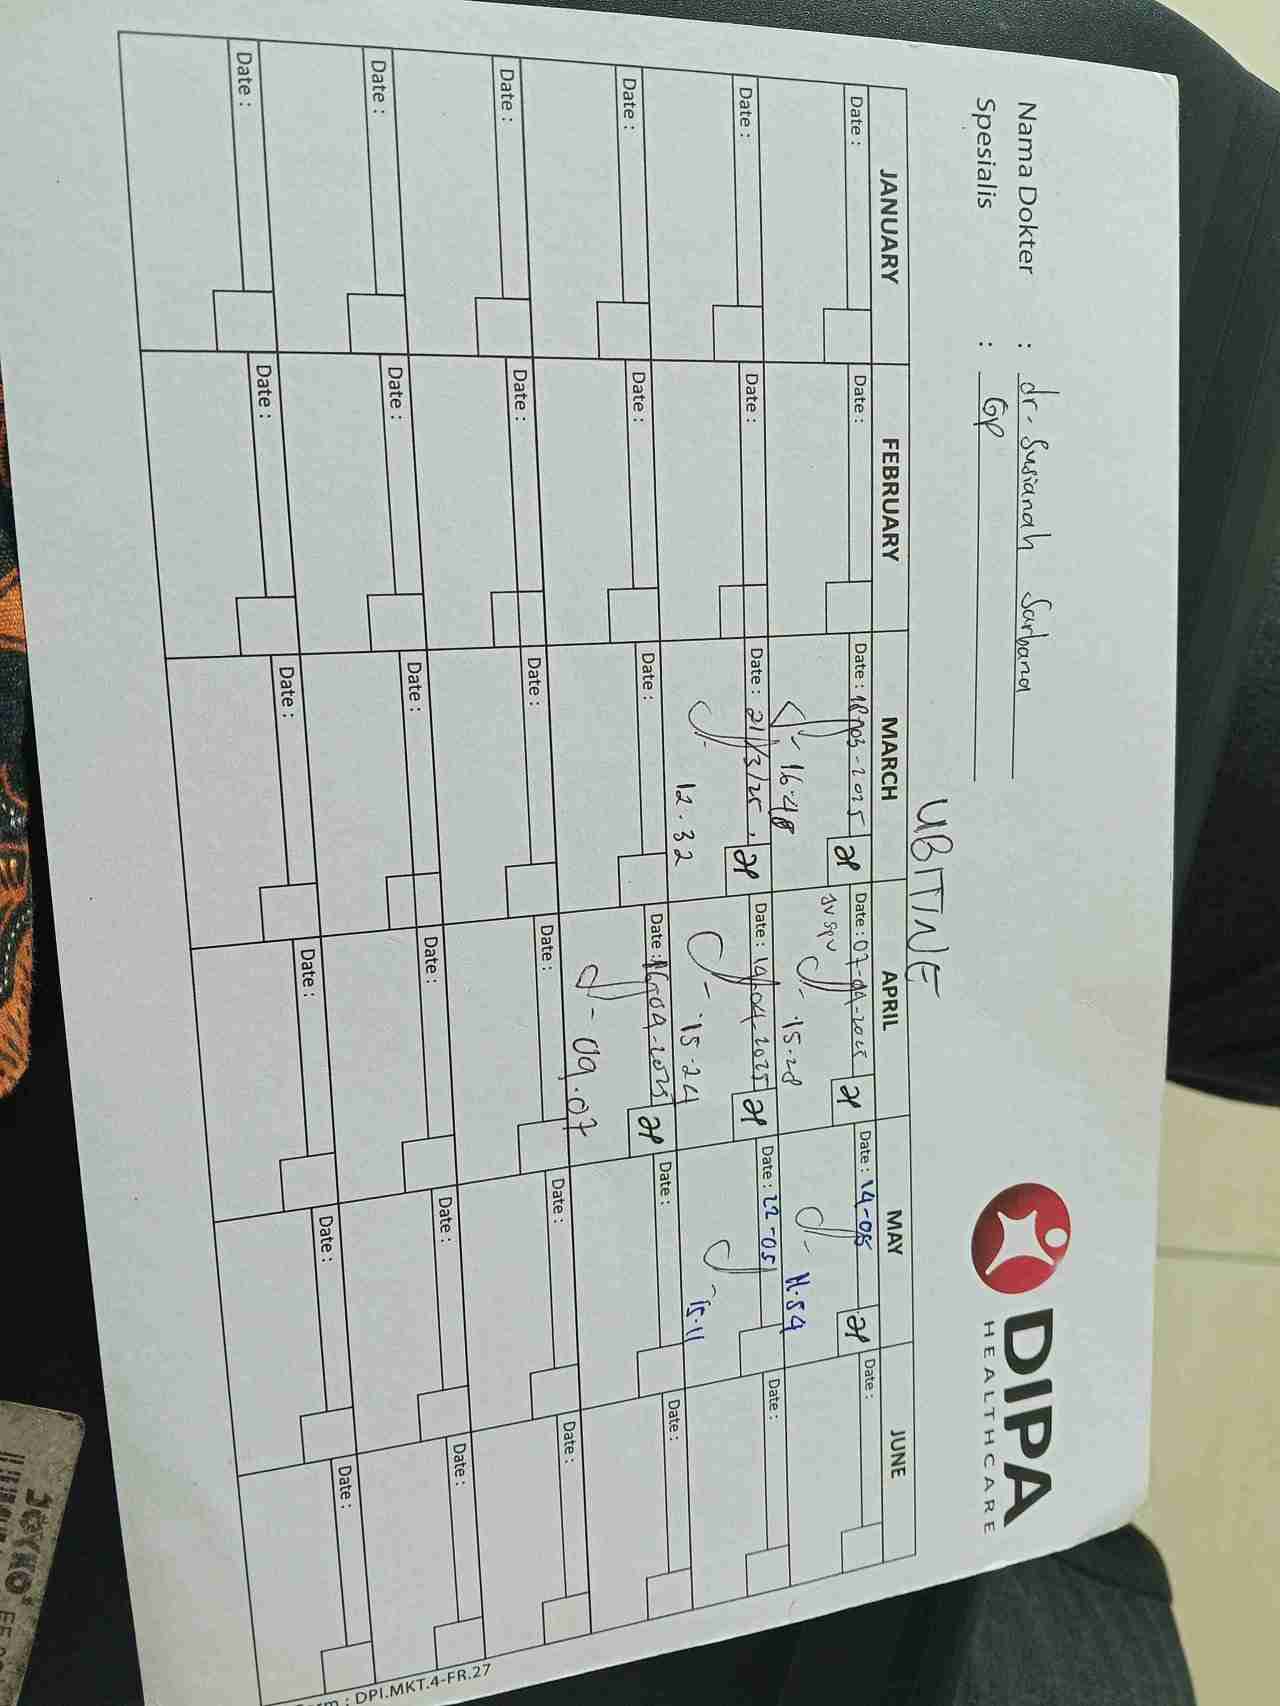 Nama Dokter : dr. Susianah Sarbana
Spesialis : GP
DIPA
HEALTHCARE
UBITINE
JANUARY FEBRUARY MARCH APRIL MAY JUNE
Date : Date : Date : 18-03-2025 Date : 07-04-2025 Date : 14-05 Date :
16.48 JV SPV 15.28 11.54
Date : Date : Date : 21/3/25 Date : 14-04-2025 Date : 22-05 Date :
12.32 15.24 15.11
Date : Date : Date : Date : 16-04-2025 Date : Date :
09.07
Date : Date : Date : Date : Date : Date :
Date : Date : Date : Date : Date : Date :
Date : Date : Date : Date : Date : Date :
: DPI.MKT.4-FR.27